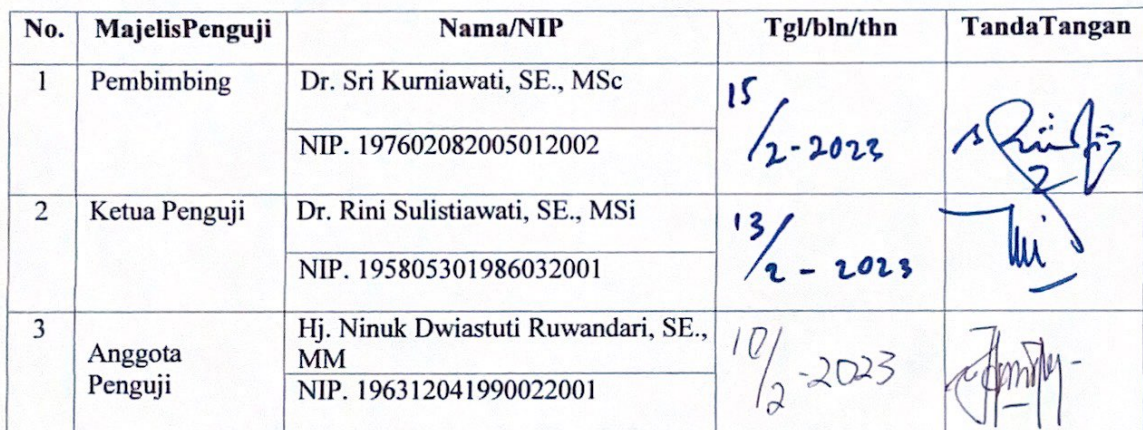 No. MajelisPenguji Nama/NIP Tgl/bln/thn TandaTangan
1 Pembimbing Dr. Sri Kurniawati, SE., MSc 15/2-2023
NIP. 197602082005012002
2 Ketua Penguji Dr. Rini Sulistiawati, SE., MSi 13/2 - 2023
NIP. 195805301986032001
3 Anggota Penguji Hj. Ninuk Dwiastuti Ruwandari, SE., MM 10/2-2023
NIP. 196312041990022001